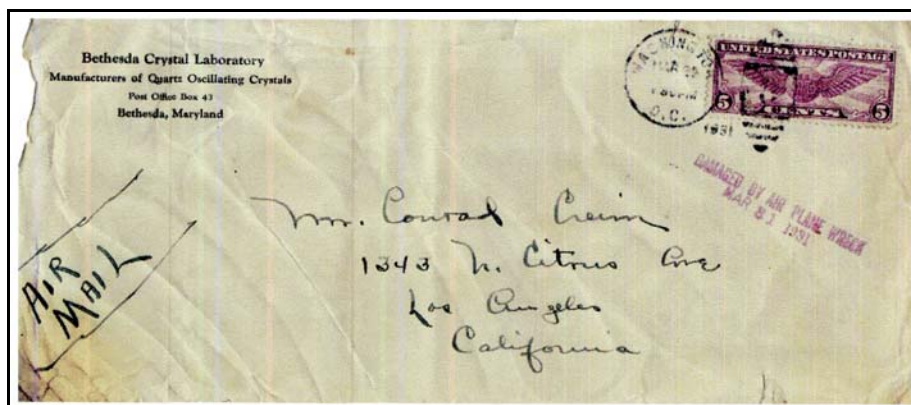 Bethesda Crystal Laboratory
Manufacturers of Quartz Oscillating Crystals
Post Office Box 43
Bethesda, Maryland
WASHINGTON
MAR 29
PM
D.C.
1931
UNITED STATES POSTAGE
5 CENTS 5
DAMAGED BY AIR PLANE WRECK
MAR 31 1931
AIR
MAIL
Mr. Conrad Creim
1343 N. Citrus Ave
Los Angeles
California